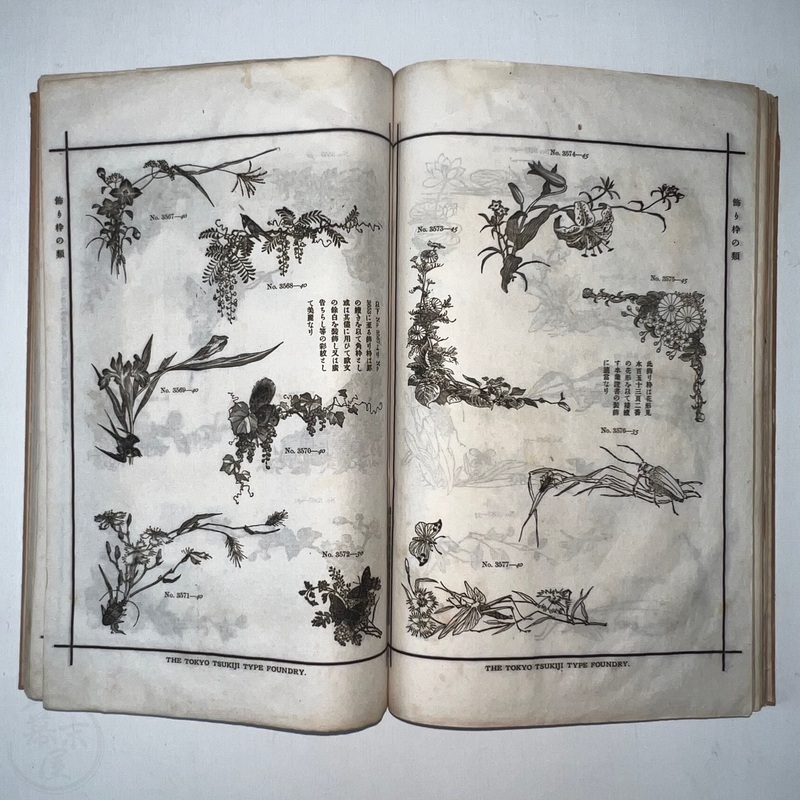 飾り枠の類
No. 3567—40
No. 3568—40
の續きを以て角枠とし
或は其儘に用ひて歐文
の餘白を裝飾し又は廣
告ちらし等の彩紋とし
て美麗なり
No. 3569—40
No. 3570—40
No. 3572—50
No. 3571—40
THE TOKYO TSUKIJI TYPE FOUNDRY.
飾り枠の類
No. 3574—45
No. 3573—45
No. 3575—45
此飾り枠は花形見
本百五十三頁二番
の花形を以て接續
す卒業證書の裝飾
に適當なり
No. 3576—35
No. 3577—40
THE TOKYO TSUKIJI TYPE FOUNDRY.